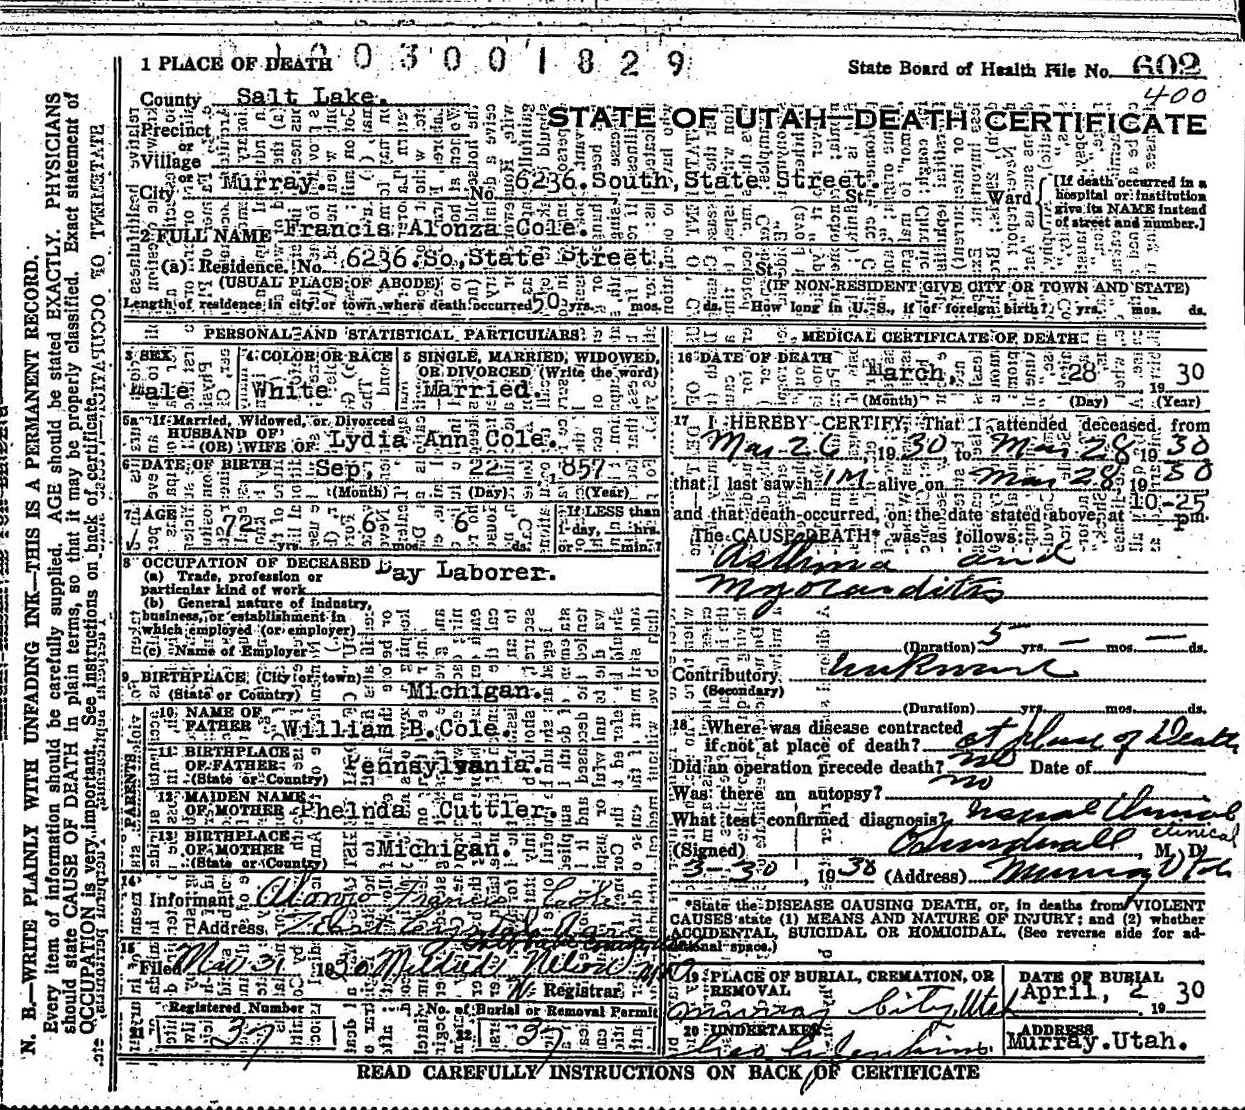 1 PLACE OF DEATH
1003001829
State Board of Health File No. 602
400
County Salt Lake.
STATE OF UTAH—DEATH CERTIFICATE
Precinct
or
Village
or
City Murray. No. 6236.South,State Street. St. Ward
[If death occurred in a
hospital or institution
give its NAME instead
of street and number.]
2 FULL NAME Francis Alonza Cole.
(a) Residence. No. 6236.So,State Street, St.
(USUAL PLACE OF ABODE) (IF NON-RESIDENT GIVE CITY OR TOWN AND STATE)
Length of residence in city or town where death occurred 50 yrs. mos. ds. How long in U. S., if of foreign birth? yrs. mos. ds.
PERSONAL AND STATISTICAL PARTICULARS
3 SEX
Male
4 COLOR OR RACE
White
5 SINGLE, MARRIED, WIDOWED,
OR DIVORCED (Write the word)
Married.
5a If Married, Widowed, or Divorced
HUSBAND OF
(OR) WIFE OF Lydia Ann Cole.
6 DATE OF BIRTH Sep, 22 1857
(Month) (Day) (Year)
7 AGE
72 yrs. 6 mos. 6 ds.
If LESS than
day, hrs.
or min.?
8 OCCUPATION OF DECEASED Day Laborer.
(a) Trade, profession or
particular kind of work
(b) General nature of industry,
business, or establishment in
which employed (or employer)
(c) Name of Employer
9 BIRTHPLACE (City or town)
(State or Country) Michigan.
PARENTS
10 NAME OF
FATHER William B.Cole.
11 BIRTHPLACE
OF FATHER Pennsylvania.
(State or Country)
12 MAIDEN NAME
OF MOTHER Phelnda Cuttler.
13 BIRTHPLACE
OF MOTHER Michigan.
(State or Country)
14
Informant Alonzo Francis Cole
Address
15
Filed Mar 31 1930 Mildred Nelson
Registrar
Registered Number
37
No. of Burial or Removal Permit
37
MEDICAL CERTIFICATE OF DEATH
16 DATE OF DEATH
March, 28 1930
(Month) (Day) (Year)
17 I HEREBY CERTIFY, That I attended deceased from
Mar 26, 1930 to Mar 28 1930
that I last saw h im alive on Mar 28 1930
and that death occurred, on the date stated above, at 10-25 pm.
The CAUSE DEATH* was as follows:
Asthma and
Myocarditis
(Duration) 5 yrs. — mos. — ds.
Contributory unknown
(Secondary)
(Duration) yrs. mos. ds.
18 Where was disease contracted
if not at place of death? at place of Death
Did an operation precede death? no Date of
Was there an autopsy? no
What test confirmed diagnosis? usual Clinical
clinical
(Signed) M. D.
3-30, 1930 (Address) Murray Utah
*State the DISEASE CAUSING DEATH, or, in deaths from VIOLENT
CAUSES state (1) MEANS AND NATURE OF INJURY; and (2) whether
ACCIDENTAL, SUICIDAL OR HOMICIDAL. (See reverse side for ad-
ditional space.)
19 PLACE OF BURIAL, CREMATION, OR
REMOVAL
Murray City, Utah
DATE OF BURIAL
April, 2 1930
20 UNDERTAKER
ADDRESS
Murray.Utah.
READ CAREFULLY INSTRUCTIONS ON BACK OF CERTIFICATE
N. B.—WRITE PLAINLY WITH UNFADING INK—THIS IS A PERMANENT RECORD.
Every item of information should be carefully supplied. AGE should be stated EXACTLY. PHYSICIANS
should state CAUSE OF DEATH in plain terms, so that it may be properly classified. Exact statement of
OCCUPATION is very important. See instructions on back of certificate.